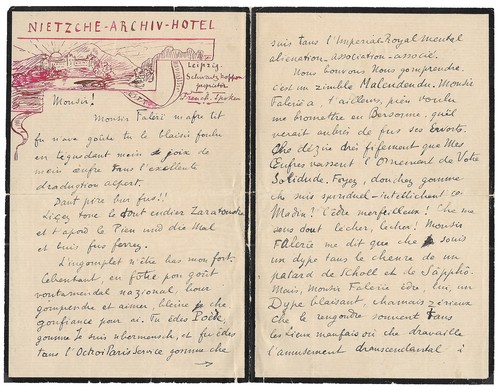 NIETZCHE-ARCHIV-HOTEL
Leipzig.
Schwartzkopper
proprietor
French. Spoken
Monsir!
Monsir Faléri m'afre tit
fu n'ava goûte tu le blaisir foulu
en léguotant mein joix de
mein œufre tans l'exellente
draduction alpert.
Dant pire bur fus!!
Liçez tone le tout endier Zaratoustra
et apord le Pien und die Mal
et buis fus ferrez.
L'ingomplet n'être bas mon fort.
Cebentant en fotre pon goût
vontamendal nazional, bour
gomprendre et aimer, bleine che
gonfiance pour ai. Tu êdes Poëte
gomme Je suis übermensch, et fu êdes
tans l'Octroi Paris Service gomme che
suis tans l'Imperial Royal mental
alienation, association-associé.
Nous bouvons Nous gomprendre.
c'est un zimble Malendendu. Monsir
Falérie a, t'ailleurs, pien voulu
me bromettre en Bersonne, qu'il
verait aubrès de fus ses Evorts.
Che dézire drès fifement que Mes
Œufres vassent l'Ornement de Votre
Solidude. Foyez, douchez gomme
che suis spiriduel-intellichent ce
Madin! C'être merfeilleux! Che me
sens dout lecher, lecher! Monsir
Falérie me dit que che suis
un dype tans le chenre de un
patard de Scholl et de Sapphô.
Mais, Monsir Falérie êdre, lui, un
Dype blaisant, chamais zérieux
che le rengondre soufent tans
les Lieux maufais où che dravaille
l'amusement dranscendantal i